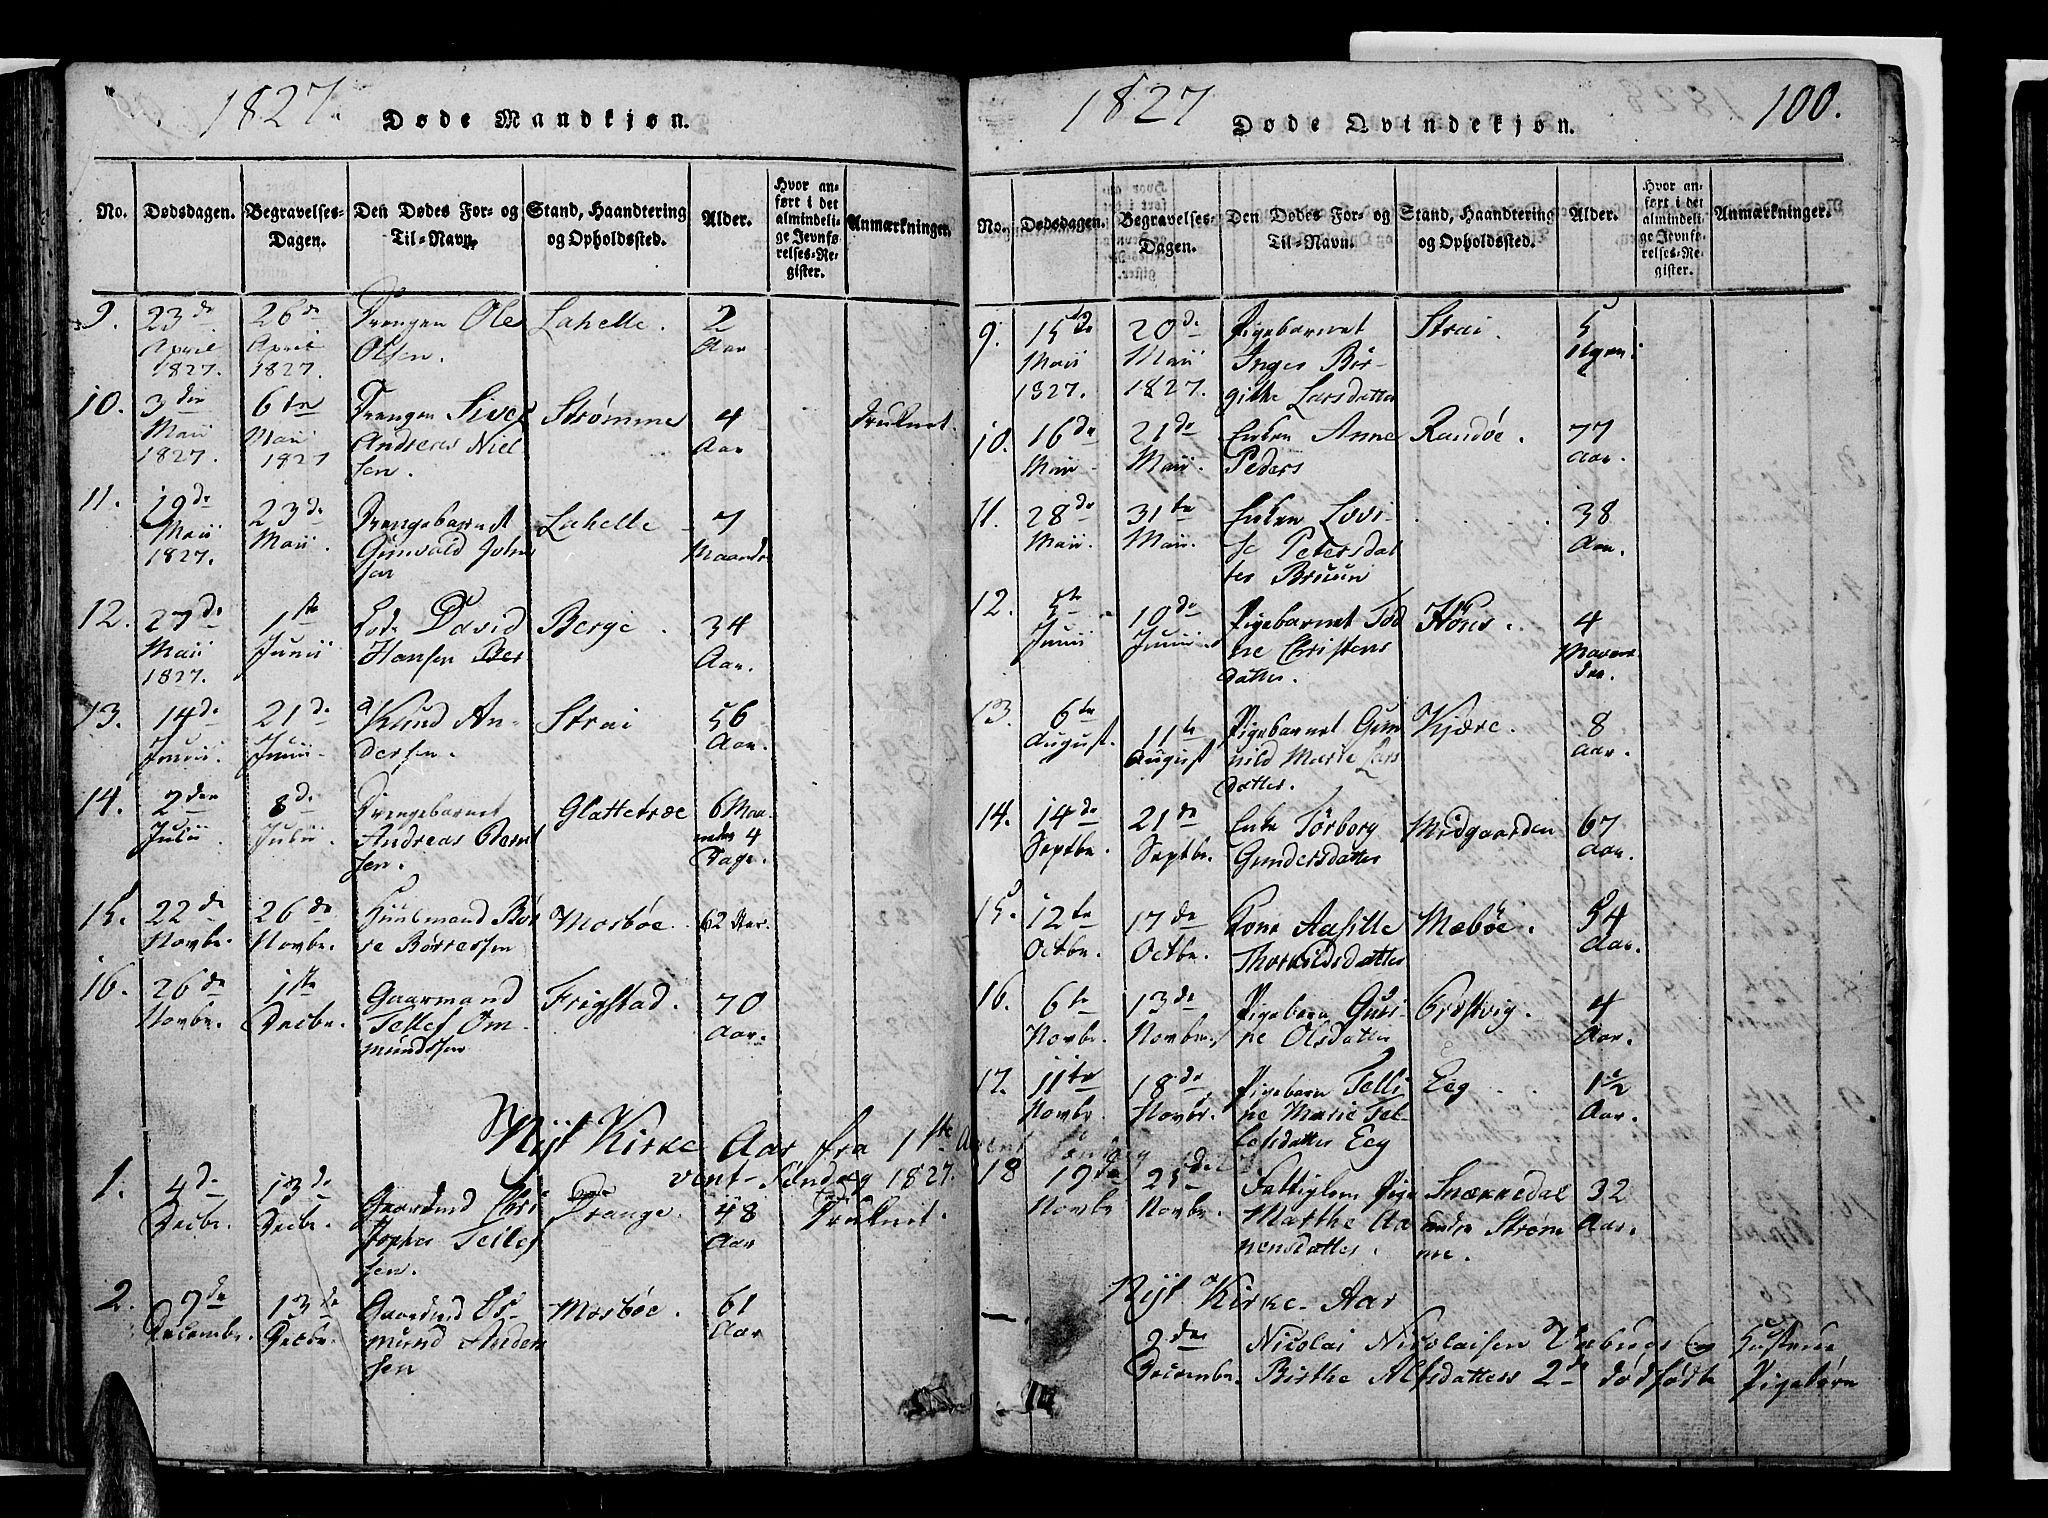 1827.
Døde Mandkjøn.
No.
Dødsdagen.
Begravelses-
Dagen.
Den Dødes For- og
Til-Navn.
Stand, Haandtering
og Opholdssted.
Alder.
Hvor an-
ført i det
almindeli-
ge Jevnfø-
relses-Re-
gister.
Anmærkninger.
9.
23de
April
1827.
26de
April
1827.
Drengen Ole
Olsen.
Lahelle.
2
Aar
10.
3die
Maii
1827.
6te
Maii
1827
Drengen
Andreas Niel
sen.
Strømme
4
Aar
Druknet.
11.
19de
Maii
1827.
23de
Maii.
Drengebarnet
Gunvald John
sen
Lahelle
7
Maaneder
12.
27de
Maii
1827.
1ste
Junii
David
Hansen Ber
Berge.
34
Aar.
13.
14de
Junii
21de
Junii.
Knud An-
dersen.
Strai
56
Aar.
14.
2den
Julii
8de
Julii.
Drengebarnet
Andreas
sen.
Glattetræ
6 Maa
neder 4
Dage.
15.
22de
Novbr.
26de
Novbr.
Huusmand Bør
re Børressen
Mosbøe.
62 Aar.
16.
26de
Novbr.
1ste
Decbr.
Gaarmand
Tellef Om-
mundssen
Frigstad.
70
Aar.
Nÿt Kirke Aar fra 1ste Ad
vent-Søndag 1827.
1.
4de
Decbr.
13de
Decbr.
Gaardmd Chri
stopher Tellef
sen.
Drange.
48
Aar
Druknet.
2.
7de
Decembr.
13de
Decbr.
Gaardmd
mund Anders
sen
Mosbøe.
61
Aar
1827
Døde Qvindekjøn.
100.
No.
Dødsdagen.
Begravelses-
Dagen.
Den Dødes For- og
Til-Navn.
Stand, Haandtering
og Opholdssted.
Alder.
Hvor an-
ført i det
almindeli-
ge Jevnfø-
relses-Re-
gister.
Anmærkninger.
9.
15de
Maii
1827.
20de
Maii
1827.
Pigebarnet
Inger Bør-
githe Larsdatter
Strai.
5
Uger.
10.
16de
Maii
21de
Maii.
Enken Anne
Peders
Randøe.
77
Aar.
11.
28de
Maii
31te
Maii.
Enken Lovi-
se Petersdat
ter Bruun
38
Aar.
12.
5te
Junii
10de
Junii.
Pigebarnet
ne Christens
datter.
4
Maane
der
13.
6te
August.
11te
August
Pigebarnet Gun
nild Marie Lars
datter.
Kjære.
8
Aar.
14.
14de
Septbr.
21de
Septbr.
Enke Tørborg
Gundersdatter
Midgaarden
67
Aar.
15.
12te
Octbr.
17de
Octbr.
Kone Aasille
Thorkildsdatter
Mæbøe.
54
Aar.
16.
6te
Novbr.
13de
Novbr.
Pigebarn Gusi-
ne Olsdatter
4
Aar.
17.
11te
Novbr.
18de
Novbr.
Pigebarn Telli
ne Marie Tel-
lefsdatter Eeg
Eeg
1 1/2
Aar.
18
19de
Novbr
25de
Novbr.
Fattiglem Pige
Marthe Aa
nensdatter.
Snækkedal
under Strøm
me.
32
Aar.
Nÿt Kirke-Aar
2den
Decembr.
Nicolai Nicolaisen og Hustrue
Birthe Alfsdatters 2de dødfødte Pigebørn